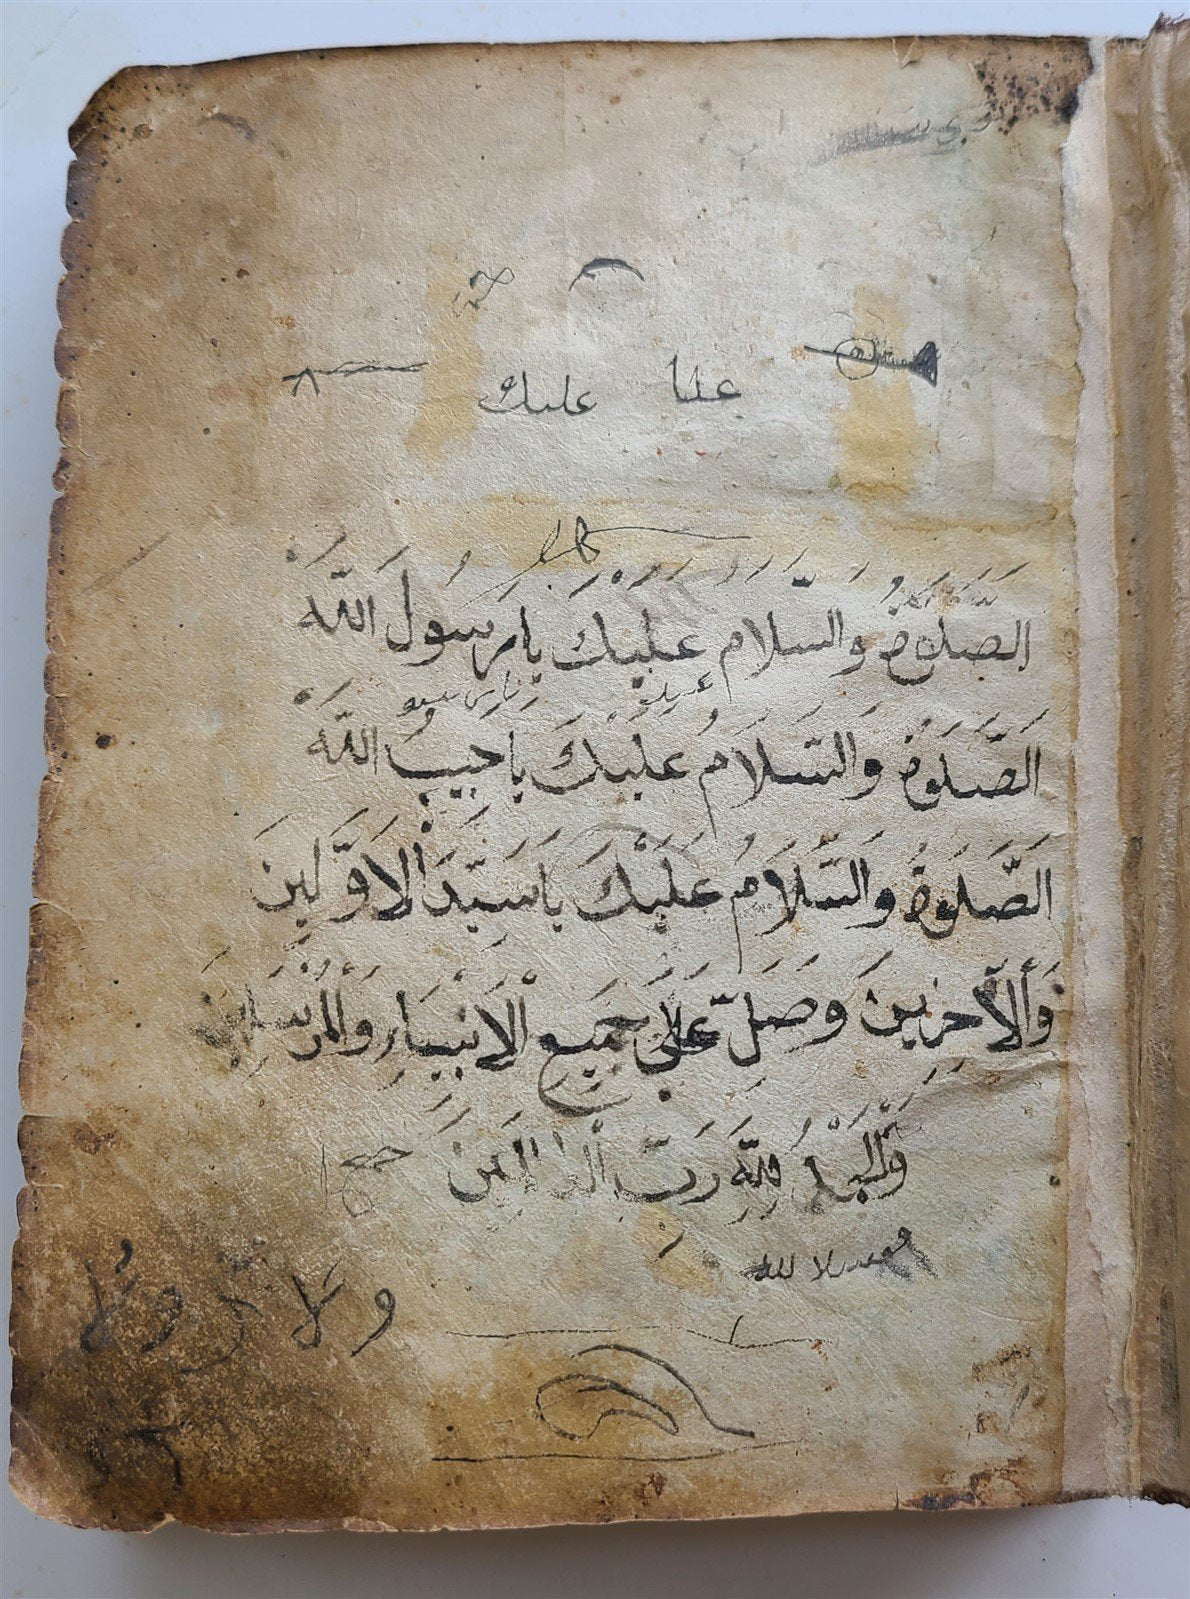 علىا عليك
الصلاة والسّلام عليك يا رَسُولَ اللّه
الصَّلَوةُ وَالسَّلَامُ عَلَيْكَ يَا حَبِيبُ اللّه
الصَّلَوةُ وَالسَّلَامُ عَلَيْكَ يَا سَيِّدَ الْاَوَّلِينَ
وَالْآخِرِينَ وَصَلِّ عَلَى جَمِيعِ الْاَنْبِيَاءِ وَالْمُرْسَلِينَ
وَالْحَمْدُ لِلّهِ رَبِّ الْعَالَمِينَ
ولا ولا